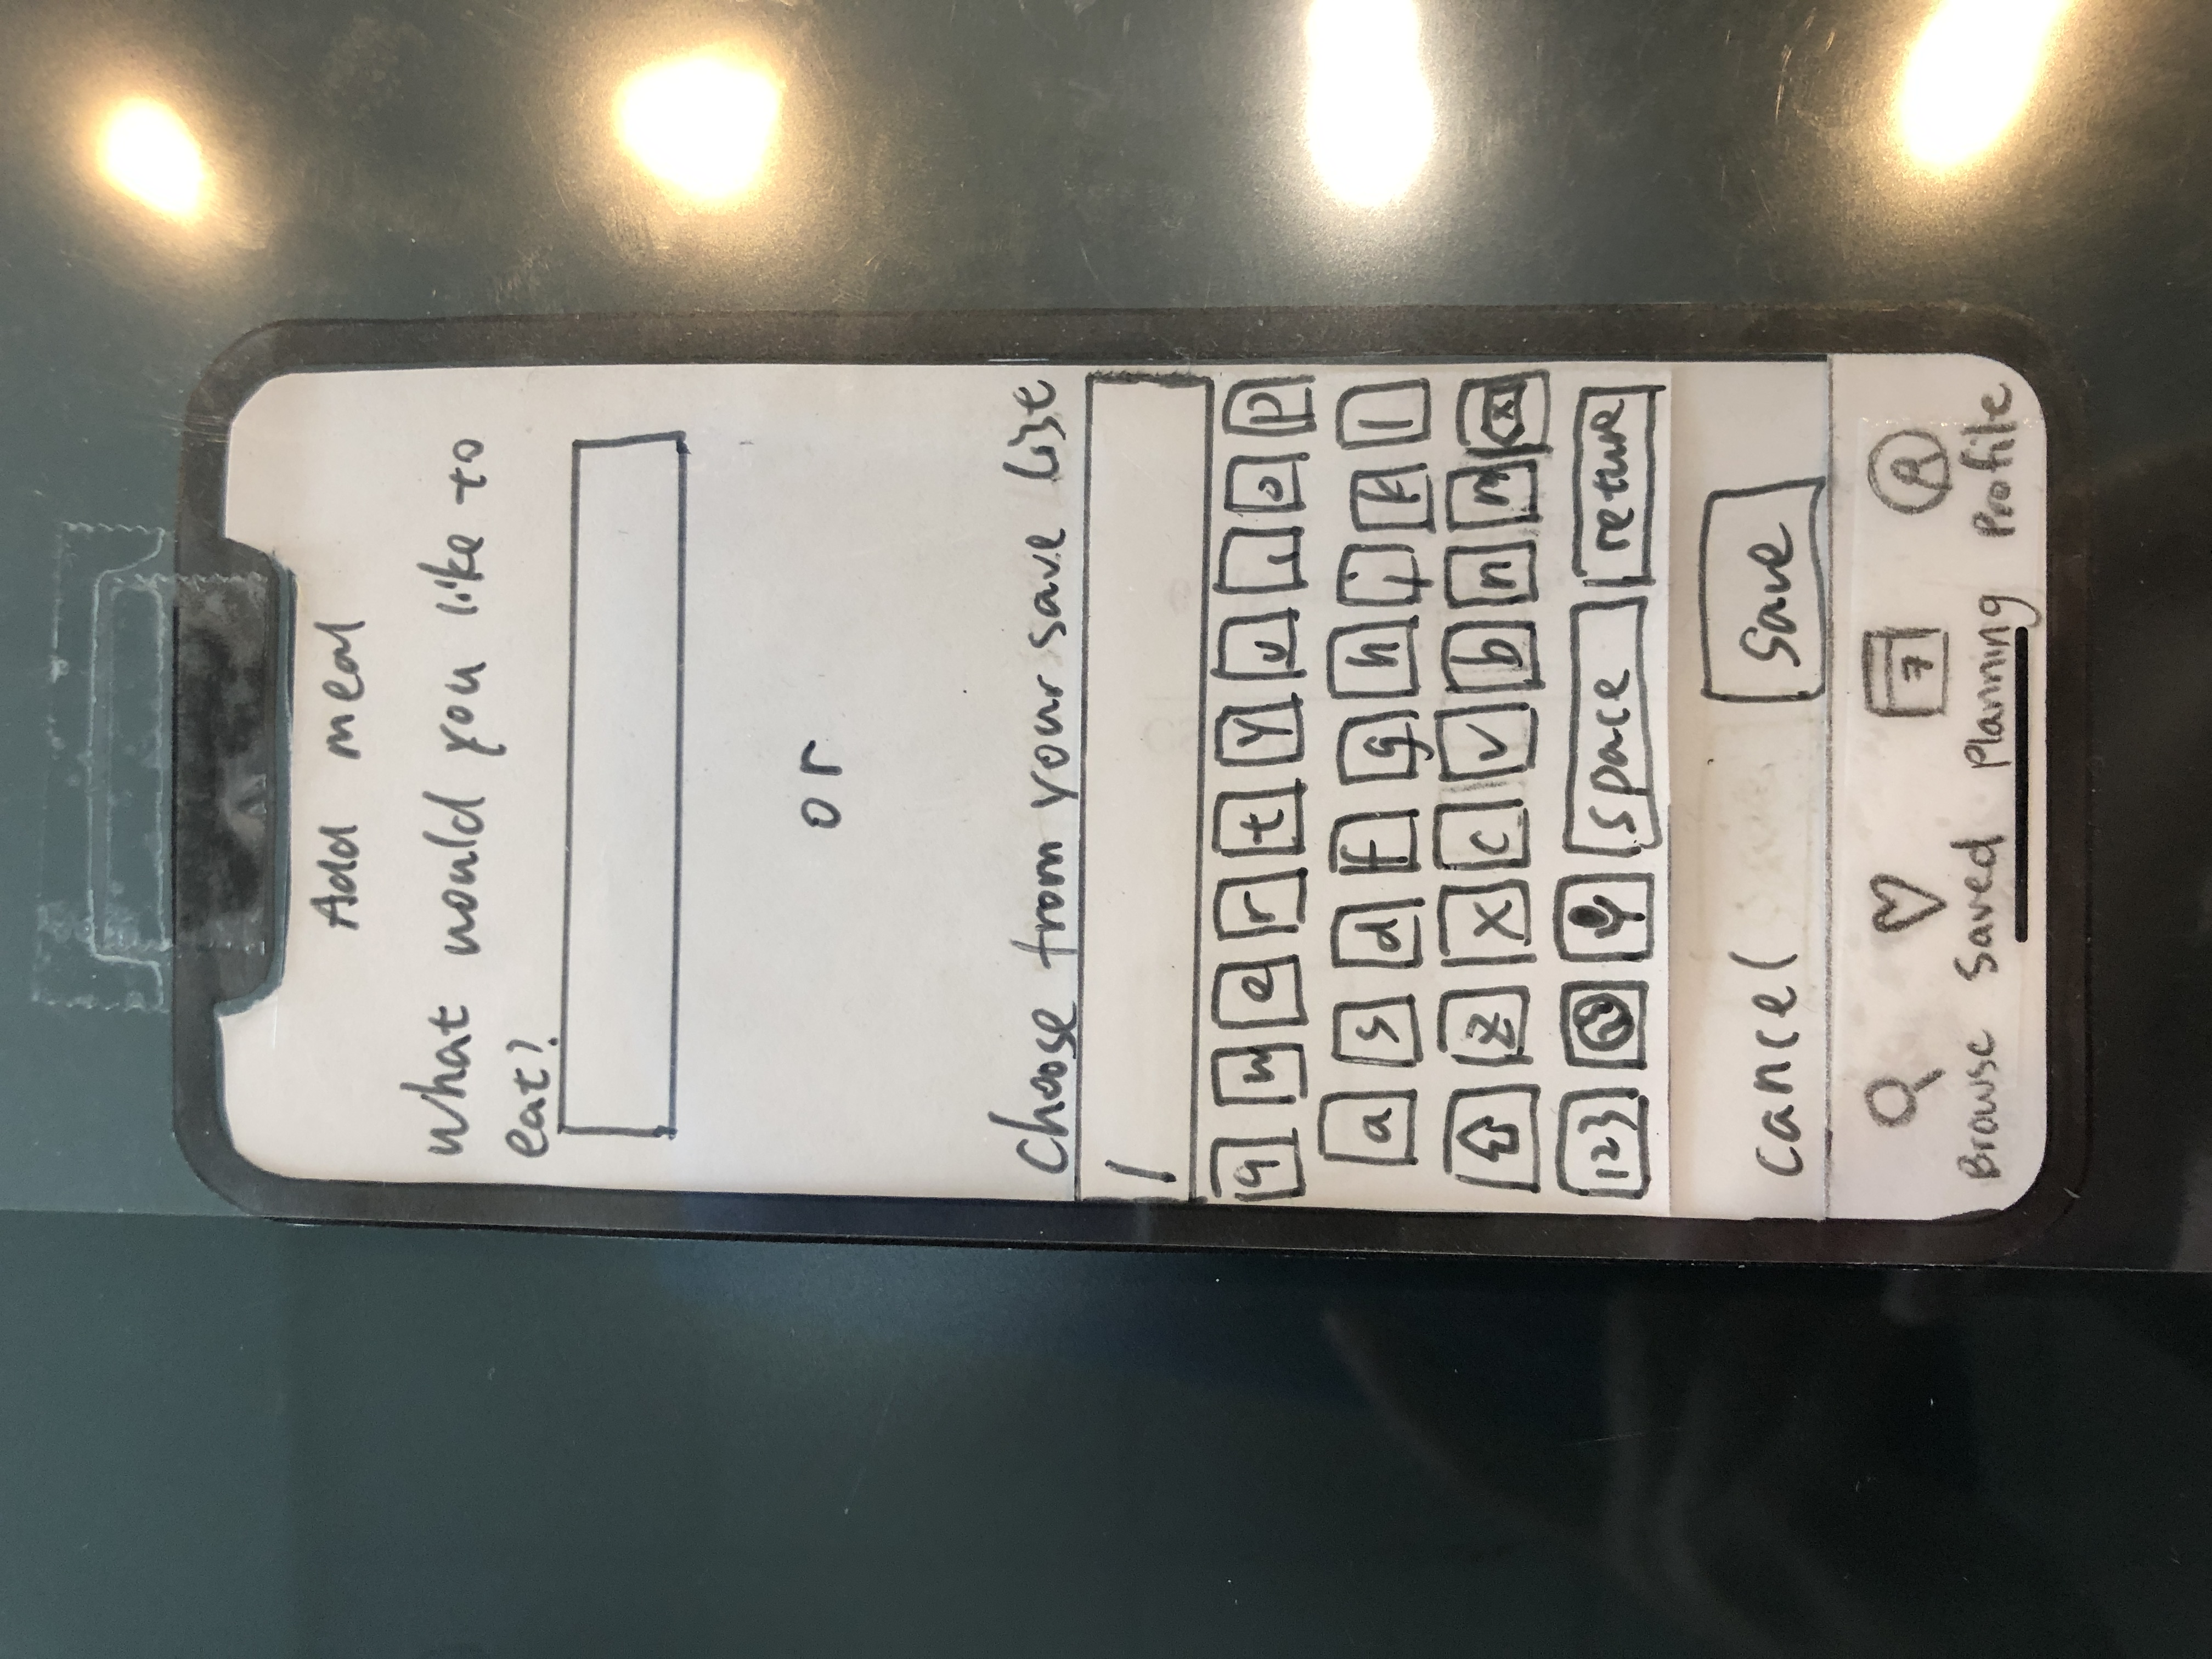 Add meal
what would you like to
eat?
or
choose from your save list
q w e r t y u i o p
a s d f g h j k l
z x c v b n m
123 space return
cancel save
7
Browse Saved Planning Profile